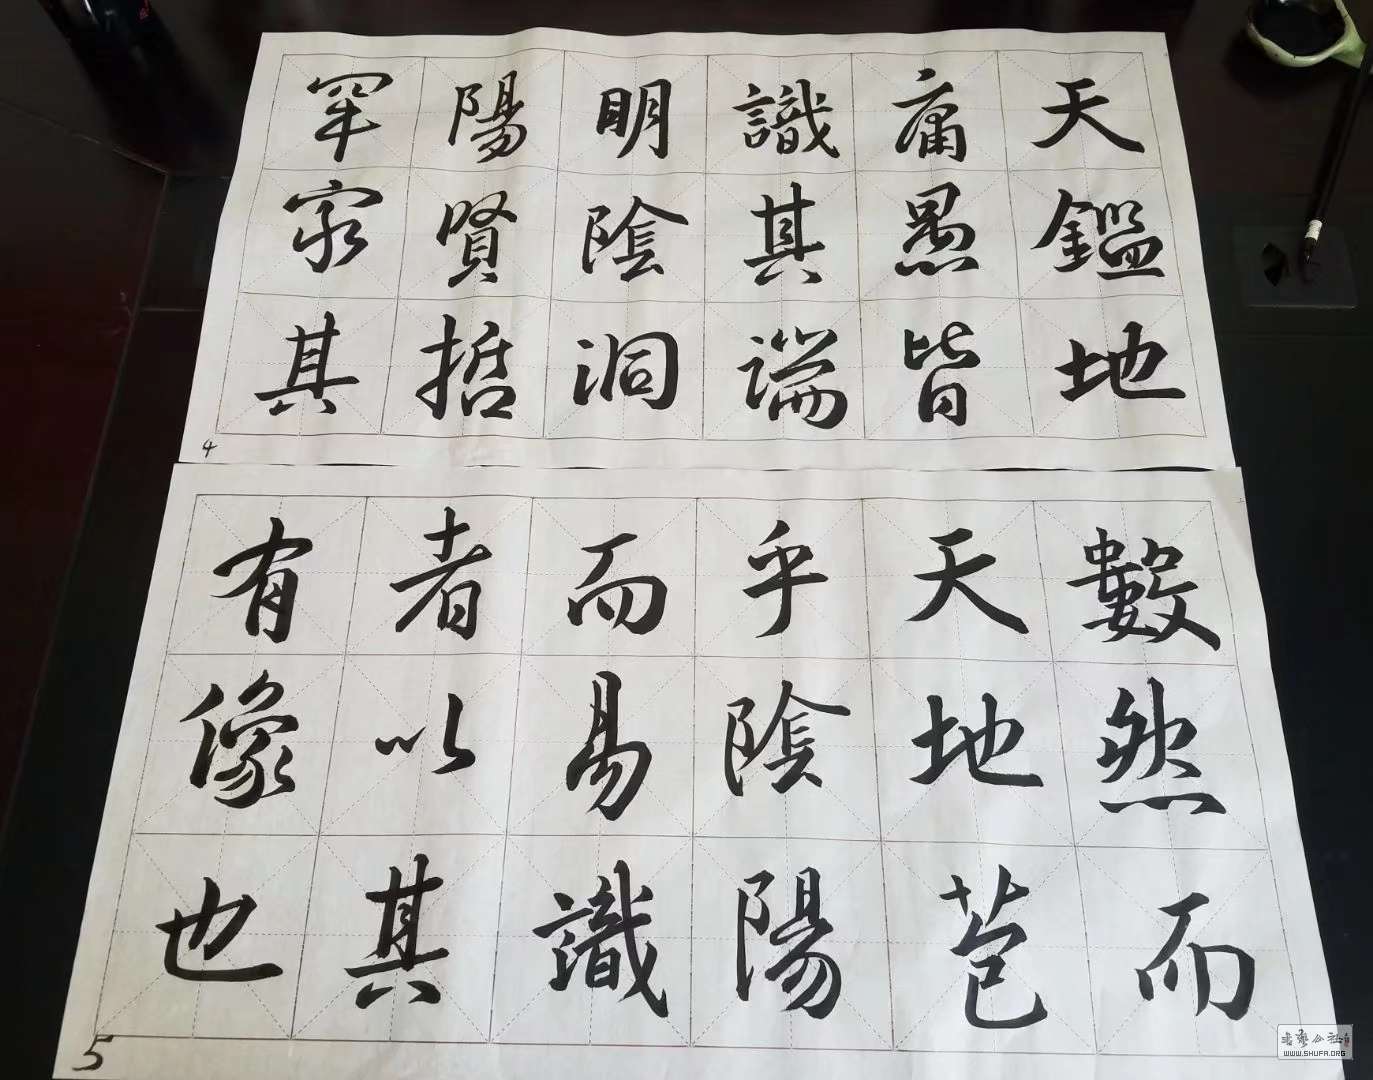 天鑑地
庸愚皆
識其端
明陰洞
陽賢哲
罕窮其
4
數然而
天地苞
乎陰陽
而易識
者以其
有像也
5
WWW.SHUFA.ORG